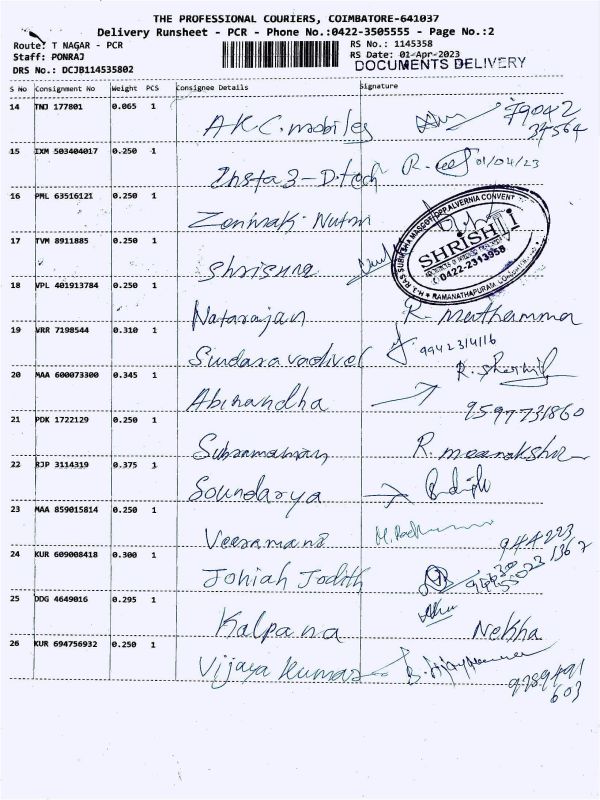 THE PROFESSIONAL COURIERS, COIMBATORE-641037
Delivery Runsheet - PCR - Phone No.:0422-3505555 - Page No.:2
Route: T NAGAR - PCR
RS No.: 1145358
Staff: PONRAJ
RS Date: 01-Apr-2023
DRS No.: DCJB114535802
DOCUMENTS DELIVERY
S No Consignment No Weight PCS Consignee Details Signature
14 TNJ 177801 0.065 1 AKC.mobiles 79042
34564
15 IXM 503404017 0.250 1 Insta 3-D.tech 01/04/23
16 PML 63516121 0.250 1
17 TVM 8911885 0.250 1 Shrisuna
SHRISHTI
0422-2313958
18 VPL 401913784 0.250 1 Natarajan R. Muthamma
19 VRR 7198544 0.310 1 Sundaravadivel 9942314116
20 MAA 600073300 0.345 1 Abinandha
9597731860
21 PDK 1722129 0.250 1 Subramanian R. meenakshi
22 RJP 3114319 0.375 1 Soundarya
23 MAA 859015814 0.250 1 Veeramani
24 KUR 609008418 0.300 1 Johiah Jodith
25 DDG 4649016 0.295 1 Kalpana Nekha
26 KUR 694756932 0.250 1 Vijaya Kumar
9789491
603